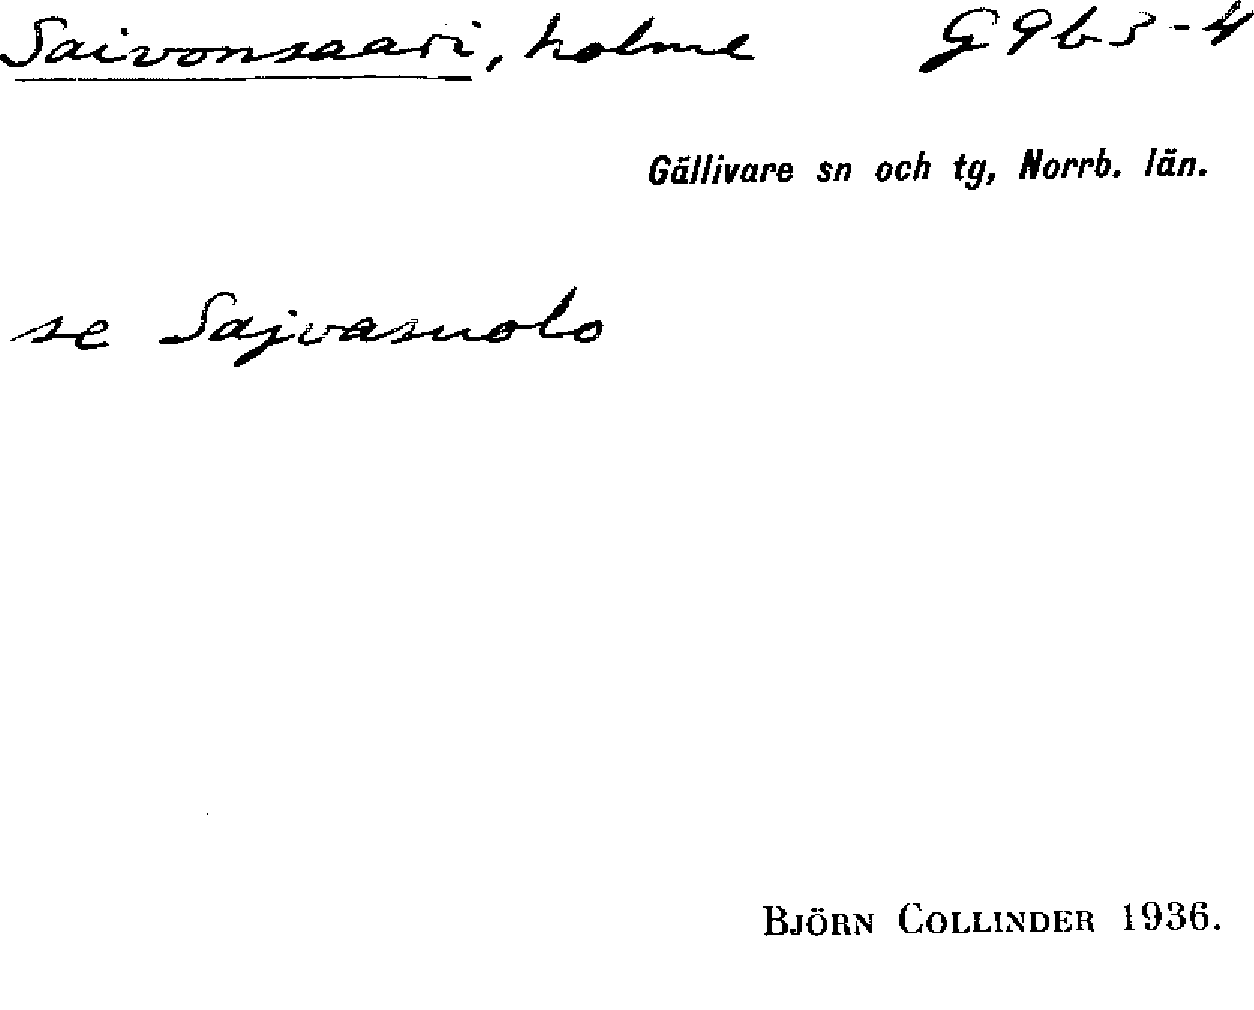 Saivonsaari, holme G9b3-4
Gällivare sn och tg, Norrb. län.
se Sajvasuolo
BJÖRN COLLINDER 1936.